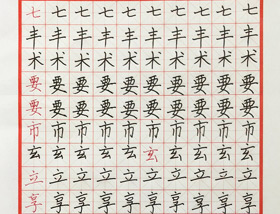 七七七七七七七七七七
丰丰丰丰丰丰丰丰丰丰
术术术术术术术术术术
要要要要要要要要要要
要要要要要要要要要要
市市市市市市市市市市
玄玄玄玄玄玄玄玄玄玄
立立立立立立立立立立
享享享享享享享享享享